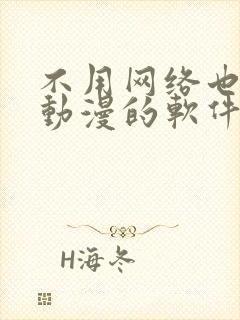 不用网络也
動漫的軟件
H海冬